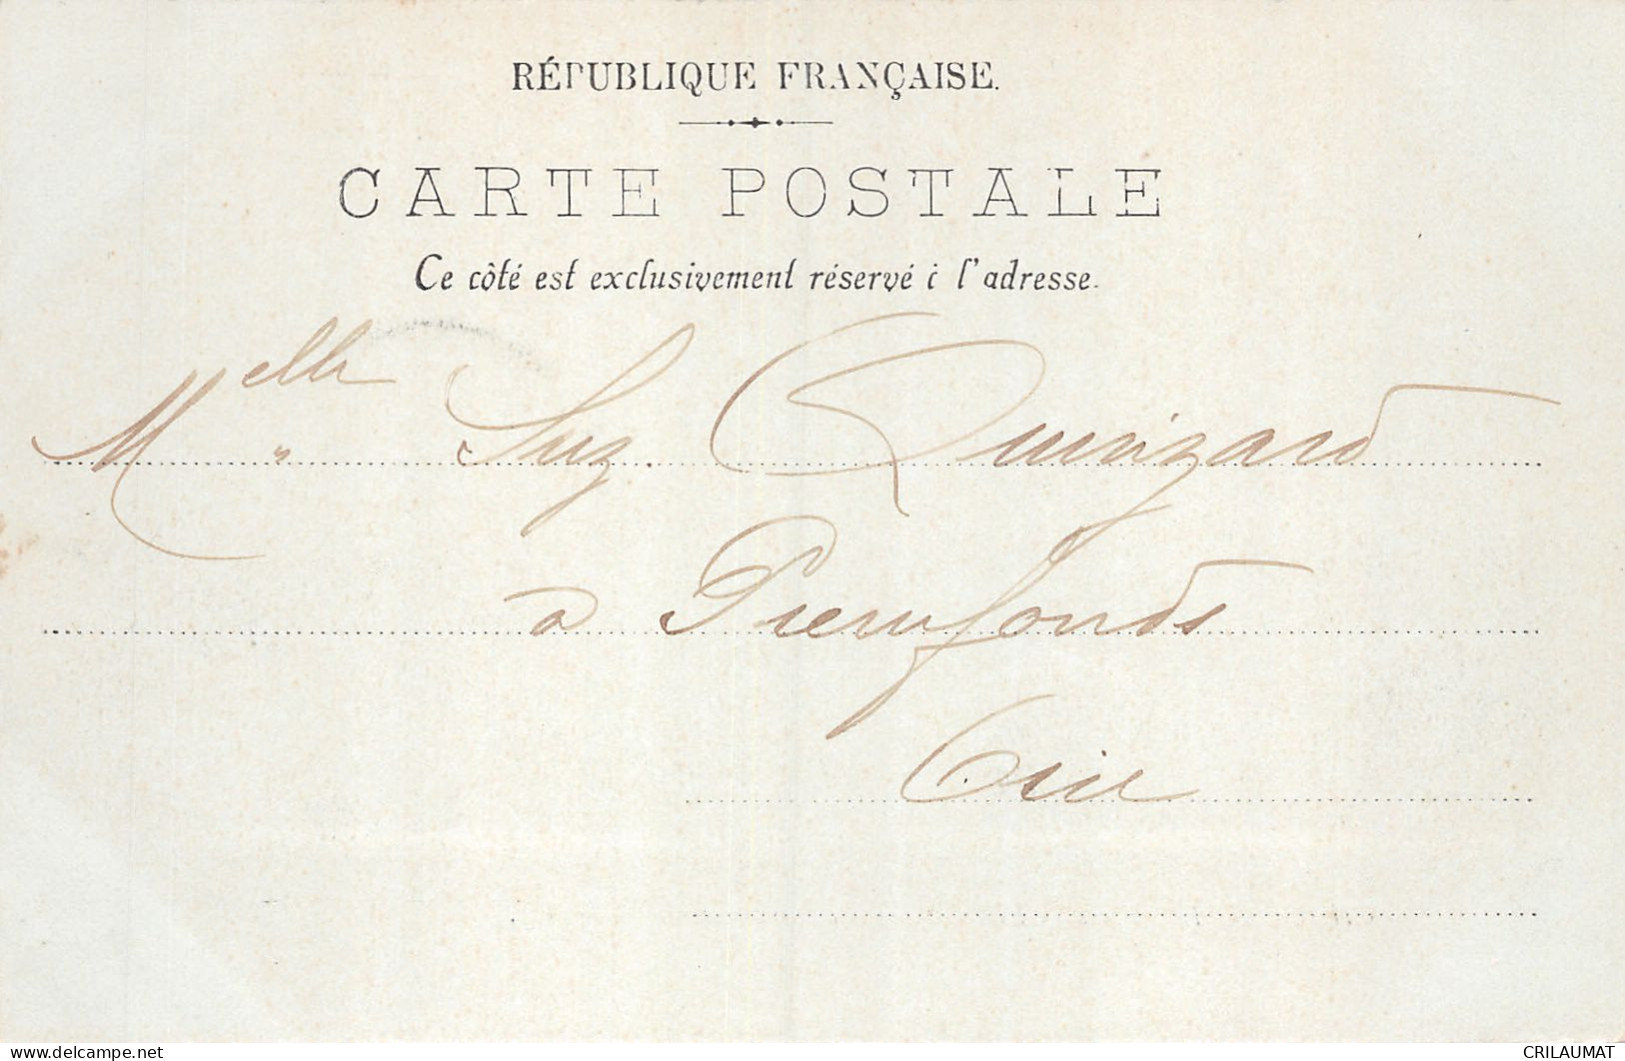 RÉPUBLIQUE FRANÇAISE.
CARTE POSTALE
Ce côté est exclusivement réservé à l'adresse.
Melle Suz. Quinizard
à Pierrefonds
Oise
delcampe.net
CRILAUMAT